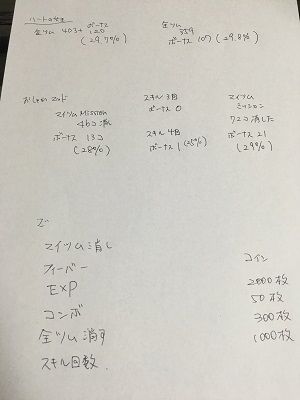 ハートの女王
ボーナス
全ツム 403+ 120
(29.7%)
全ツム
359
ボーナス 107 (29.8%)
おしゃれマッド
マイツムMission
46コ消し
ボーナス 13コ
(28%)
スキル3回
ボーナス 0
スキル4回
ボーナス 1 (25%)
マイツム
ミッション
72コ消した
ボーナス 21
(29%)
で
マイツム消し
フィーバー
EXP
コンボ
全ツム消す
スキル回数
コイン
2000枚
50枚
300枚
1000枚